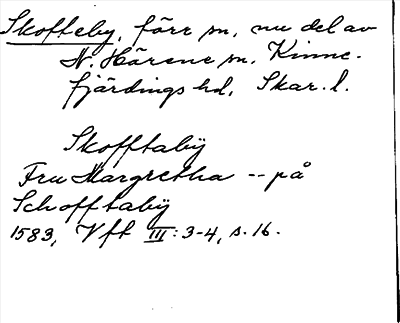 Skofteby, förr sn, nu del av
N. Härene sn, Kinne-
fjärdings hd, Skar. l.
Skofftaby
Fru Margretha -- på
Schofftaby
1583, Vft III: 3-4, s. 16.